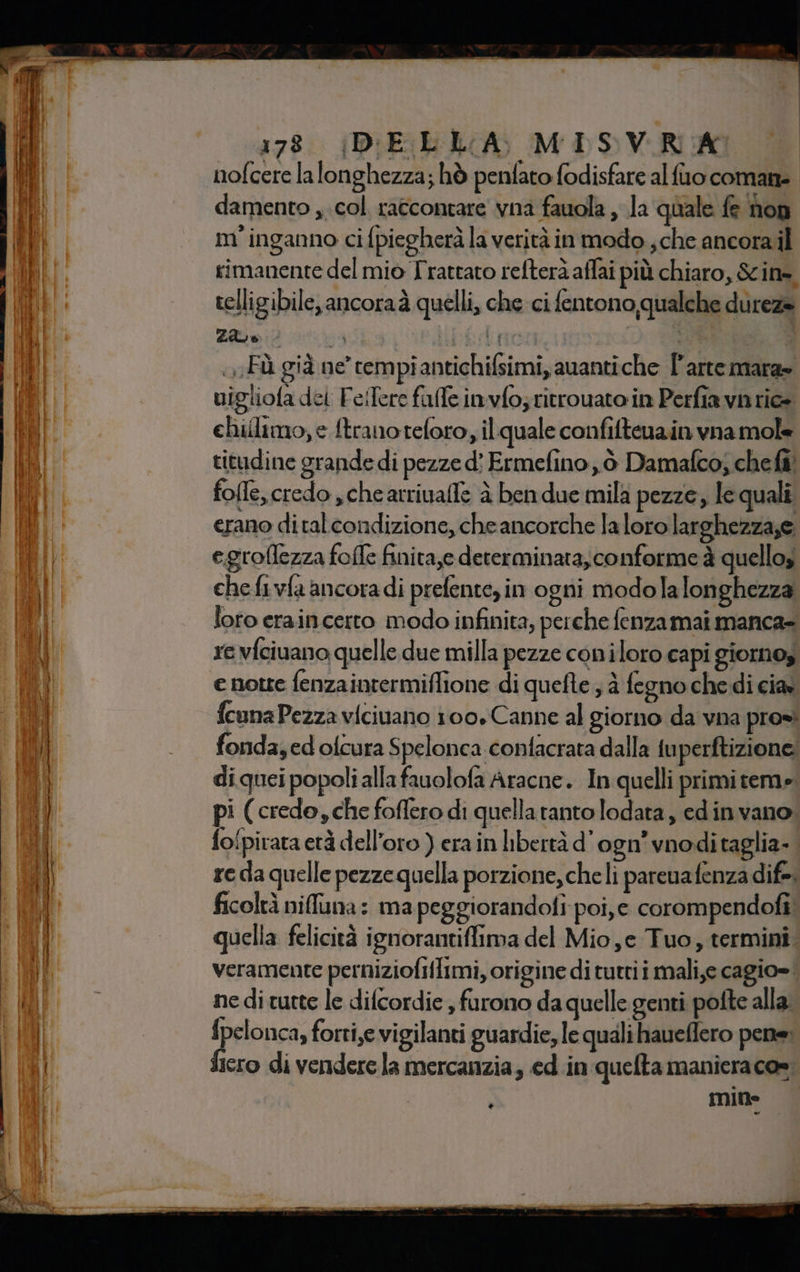 178 DELLA MISVRA
noſcere la longhezza; hò penſato ſodisfare al ſuo coman-
damento, col raccontare vna fauola, la quale ſe non
m'inganno ci ſpiegherà la verità in modo, che ancora il
rimanente del mio Trattato reſterà aſſai più chiaro, & in-
telligibile, ancora à quelli, che ci ſentono, qualche durez-
za.
Fù già ne' tempi antichiſsimi, auanti che l'arte mara-
uiglioſa del Teſſere fuſſe in vſo, ritrouato in Perſia vn ric-
chiſſimo, e ſtrano teſoro, il quale conſiſteua in vna mol-
titudine grande di pezze d' Ermeſino, ò Damaſco, che ſi
foſſe, credo, che arriuaſſe à ben due mila pezze, le quali
erano di tal condizione, che ancorche la loro larghezza, e
e groſſezza foſſe finita, e determinata, conforme à quello,
che ſi vſa ancora di preſente, in ogni modo la longhezza
loro era in certo modo infinita, perche ſenza mai manca-
re vſciuano quelle due milla pezze con i loro capi giorno,
e notte ſenza intermiſſione di queſte, à ſegno che di cia-
ſcuna Pezza vſciuano 100. Canne al giorno da vna pro-
fonda, ed oſcura Spelonca conſacrata dalla ſuperſtizione
di quei popoli alla fauoloſa Aracne. In quelli primi tem-
pi (credo, che foſſero di quella tanto lodata, ed in vano
ſoſpirata età dell'oro) era in libertà d' ogn' vno di taglia-
re da quelle pezze quella porzione, che li pareua ſenza dif-
ficoltà niſſuna: ma peggiorandoſi poi, e corompendoſi
quella felicità ignorantiſſima del Mio, e Tuo, termini
veramente pernizioſiſſimi, origine di tutti i mali, e cagio-
ne di tutte le diſcordie, furono da quelle genti poſte alla
ſpelonca, forti, e vigilanti guardie, le quali haueſſero pen-
ſiero di vendere la mercanzia, ed in queſta maniera co-
min-